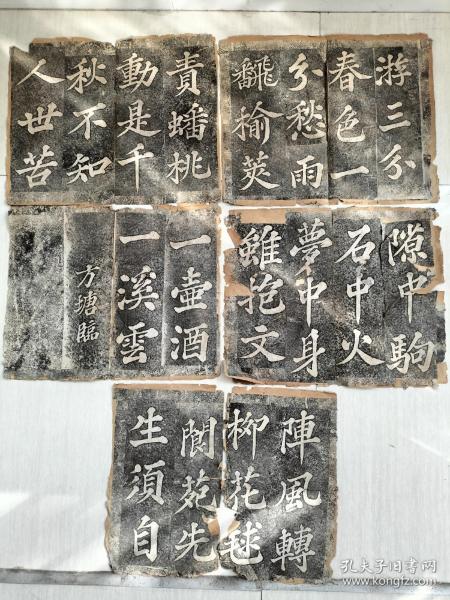 游三分
春色一
分愁雨
飜榆莢
責蟠桃
動是千
秋不知
人世苦
隙中駒
石中火
夢中身
雖抱文
一壺酒
一溪雲
方塘臨
陣風轉
柳花毬
閬苑先
生須自
孔夫子旧书网
www.kongfz.com